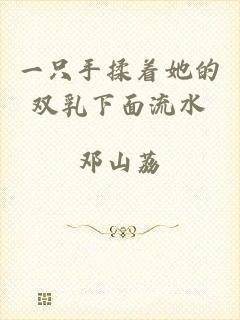 一只手揉着她的
双乳下面流水
邓山荔